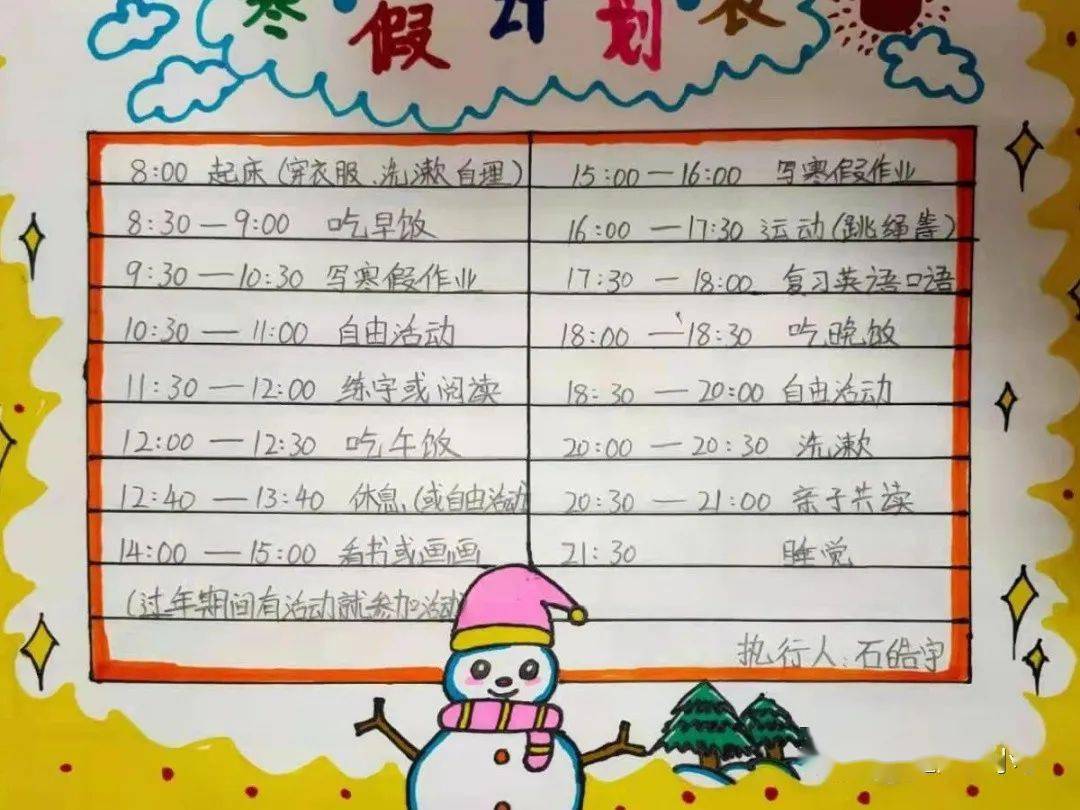 寒假计划表
8:00 起床(穿衣服、洗漱自理)
8:30—9:00 吃早饭
9:30—10:30 写寒假作业
10:30—11:00 自由活动
11:30—12:00 练字或阅读
12:00—12:30 吃午饭
12:40—13:40 休息(或自由活动)
14:00—15:00 看书或画画
(过年期间有活动就参加活动)
15:00—16:00 写寒假作业
16:00—17:30 运动(跳绳等)
17:30—18:00 复习英语口语
18:00—18:30 吃晚饭
18:30—20:00 自由活动
20:00—20:30 洗漱
20:30—21:00 亲子共读
21:30 睡觉
执行人:石皓宇